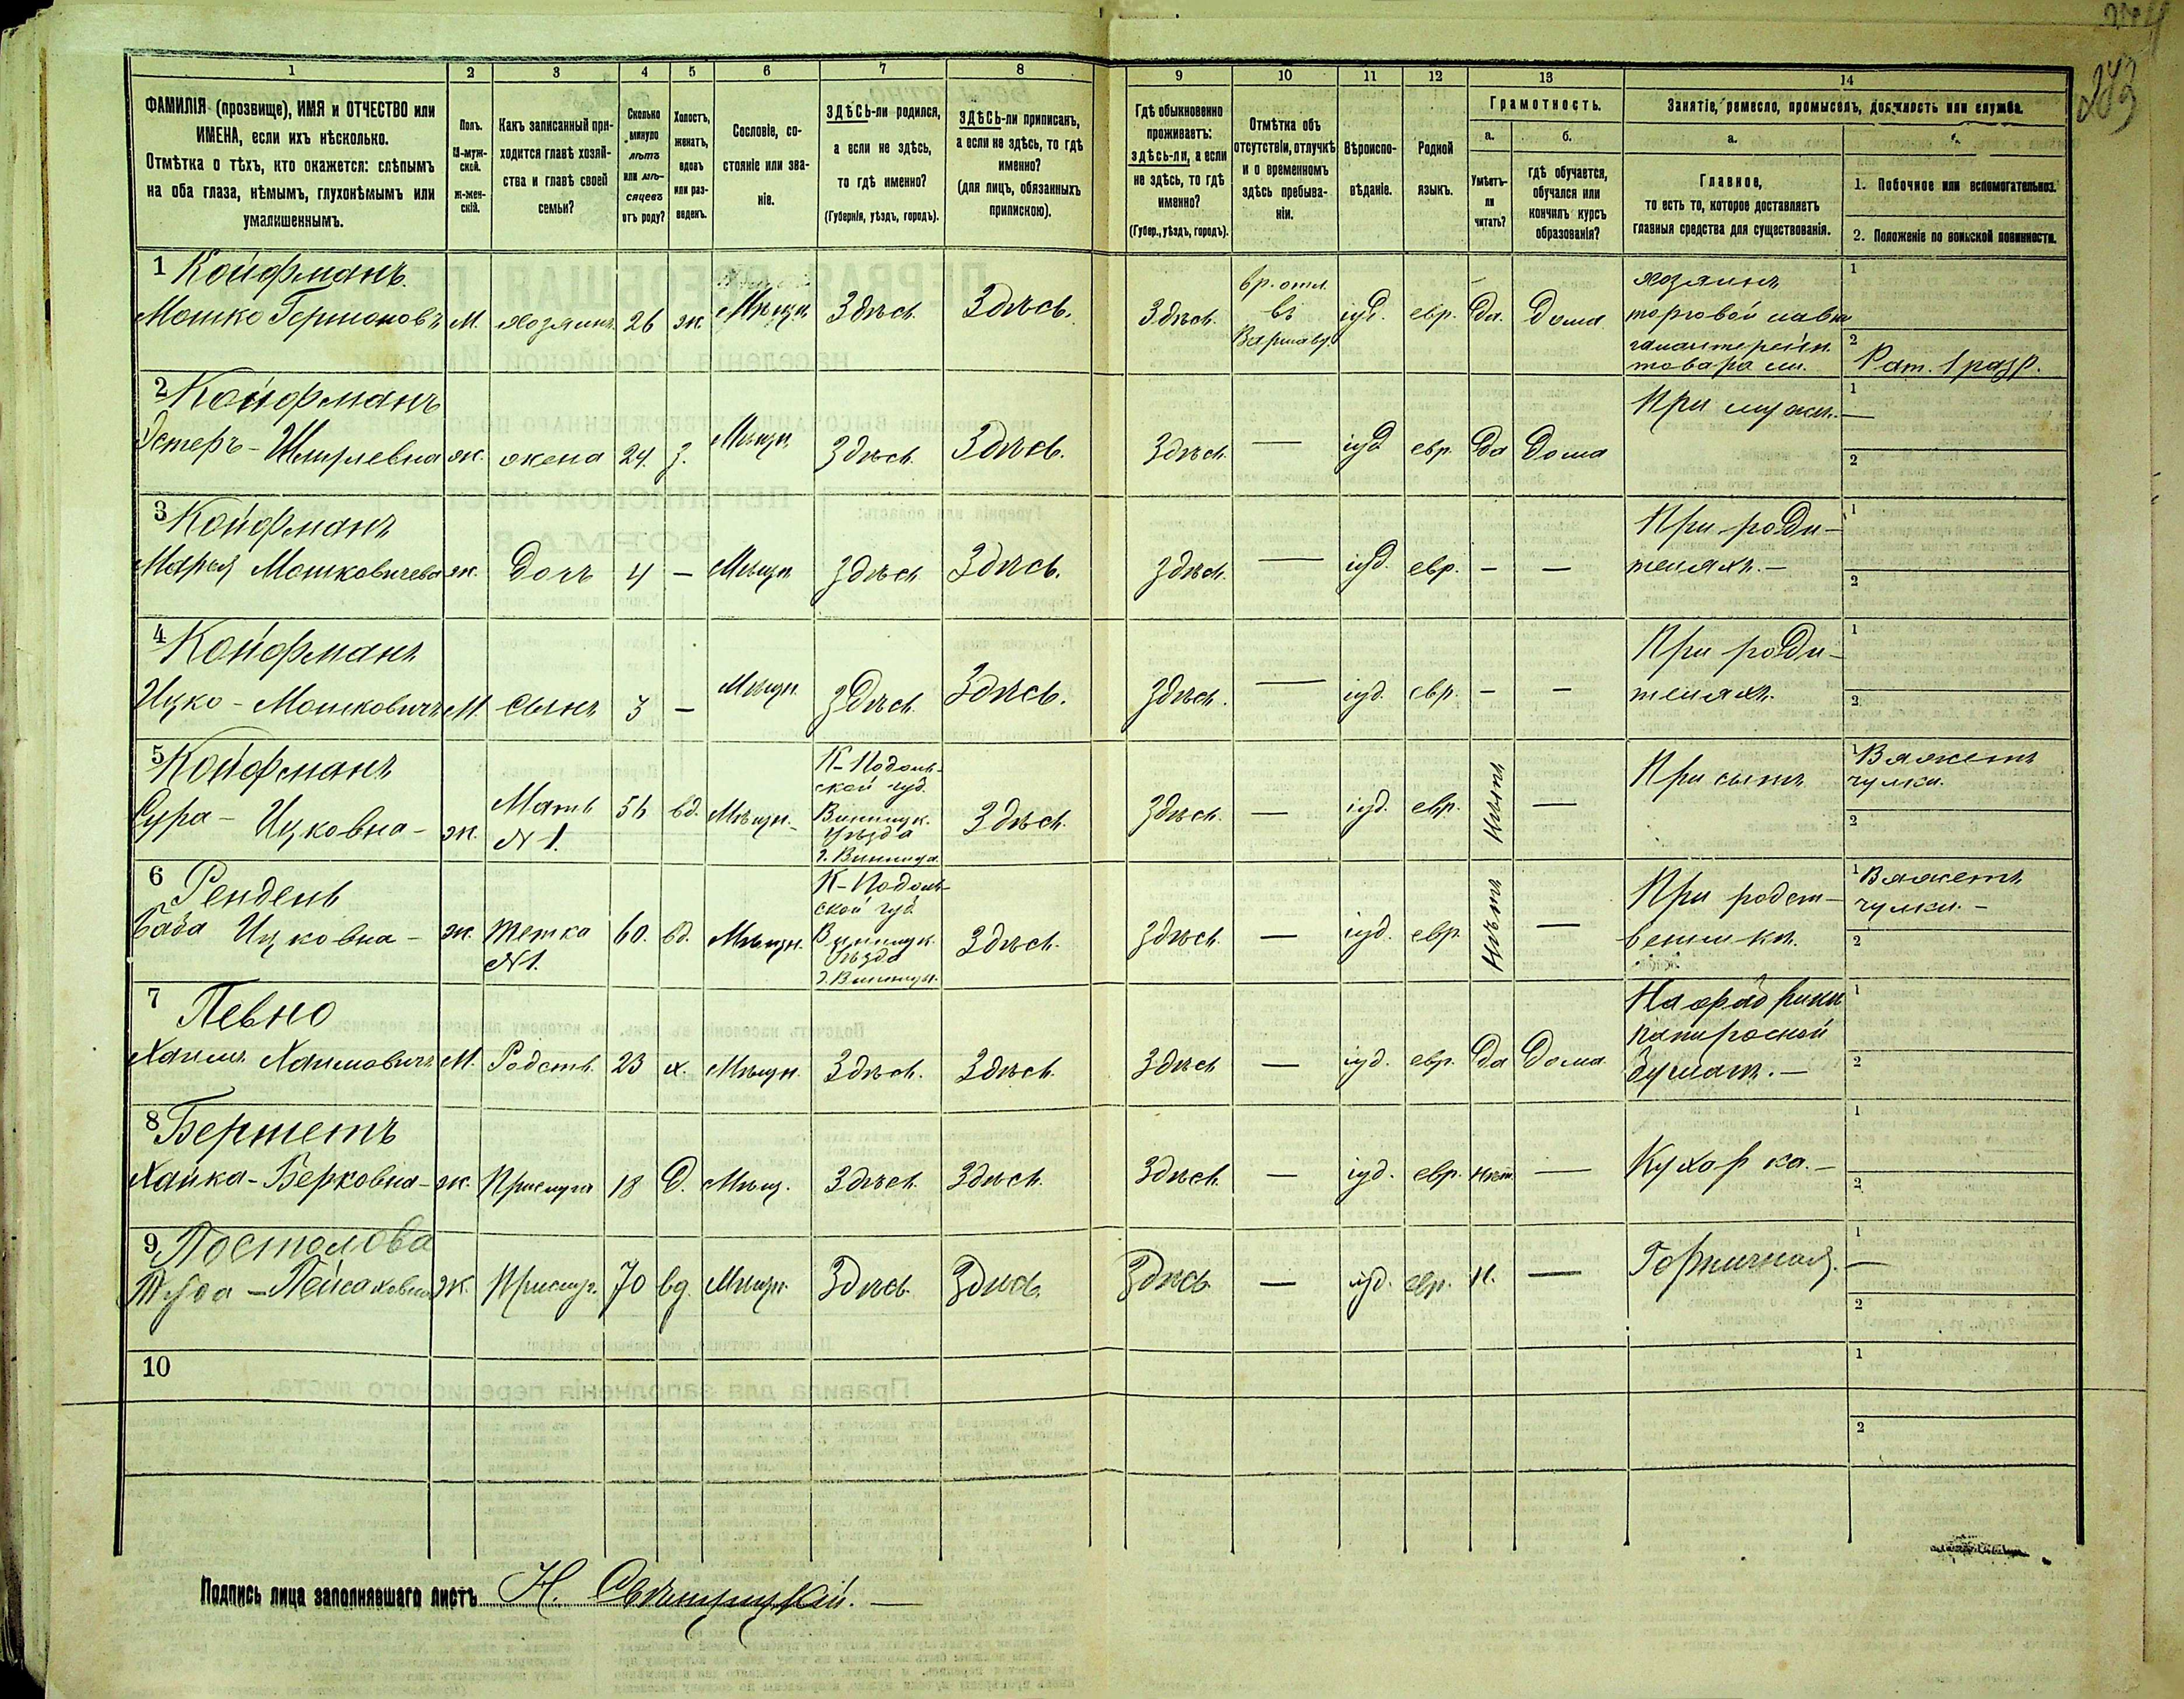 283
1 2 3 4 5 6 7 8 9 10 11 12 13 14
ФАМИЛІЯ (прозвище), ИМЯ и ОТЧЕСТВО или
ИМЕНА, если ихъ нѣсколько.
Отмѣтка о тѣхъ, кто окажется: слѣпымъ
на оба глаза, нѣмымъ, глухонѣмымъ или
умалишеннымъ.
Полъ.
М-муж-
ской.
ж-жен-
скій.
Какъ записанный при-
ходится главѣ хозяй-
ства и главѣ своей
семьи?
Сколько
минуло
лѣтъ
или мѣ-
сяцевъ
отъ роду?
Холостъ,
женатъ,
вдовъ
или раз-
веденъ.
Сословіе, со-
стояніе или зва-
ніе.
ЗДѢСЬ-ли родился,
а если не здѣсь,
то гдѣ именно?
(Губернія, уѣздъ, городъ).
ЗДѢСЬ-ли приписанъ,
а если не здѣсь, то гдѣ
именно?
(для лицъ, обязанныхъ
припискою).
Гдѣ обыкновенно
проживаетъ:
здѣсь-ли, а если
не здѣсь, то гдѣ
именно?
(Губер., уѣздъ, городъ).
Отмѣтка объ
отсутствіи, отлучкѣ
и о временномъ
здѣсь пребыва-
ніи.
Вѣроиспо-
вѣданіе.
Родной
языкъ.
Грамотность.
а.
Умѣетъ-
ли
читать?
б.
гдѣ обучается,
обучался или
кончилъ курсъ
образованія?
Занятіе, ремесло, промыселъ, должность или служба.
а.
Главное,
то есть то, которое доставляетъ
главныя средства для существованія.
1. Побочное или вспомогательное.
2. Положеніе по воинской повинности.
1 Койфманъ
Мошко Гершоновъ М. хозяинъ 26 ж. Мѣщн Здѣсь Здѣсь. Здѣсь. вр. отл. въ Варшаву. іуд. евр. Да. Дома
хозяинъ
торговой лавки
галантерейн.
товарами.
1
2 Рат. 1 разр.
2 Койфманъ
Эстеръ - Шмулевна ж. жена 24. з. Мѣщн Здѣсь Здѣсь. Здѣсь — іуд. евр. Да Дома При мужѣ.
1 —
2
3 Койфманъ
Марья Мошковичева ж. Дочь 4 — Мѣщн Здѣсь Здѣсь. Здѣсь. — іуд. евр. — —
При роди-
теляхъ. —
1
2
4 Койфманъ
Ицко - Мошковичъ М. сынъ 3 — Мѣщн. Здѣсь Здѣсь. Здѣсь. — іуд. евр. — —
При роди-
теляхъ.
1
2
5 Койфманъ
Сура - Ицковна - ж. Мать N 1. 56 вд. Мѣщн.
К-Подоль-
ской губ.
Винницк.
Уѣзда
г. Винница
Здѣсь. Здѣсь. — іуд. евр. Нѣтъ — При сынѣ
1 Вяжетъ
чулки.
2
6 Рендель
База Ицковна - ж. тетка N 1. 60. вд. Мѣщн.
К-Подоль-
ской губ.
Винницк.
Уѣзда
г. Винницы.
Здѣсь. Здѣсь. — іуд. евр Нѣтъ —
При родст-
венникѣ.
1 Вяжетъ
чулки. -
2
7 Певно
Хаимъ Хаимовичъ М. Родств. 23 х. Мѣщн. Здѣсь. Здѣсь. Здѣсь — іуд. евр. Да Дома
На фабрики
папиросной
бумаги. —
1
2
8 Берметъ
Хайка - Берковна - ж. Прислуга 18 Д. Мѣщ. Здѣсь. Здѣсь. Здѣсь. — іуд. евр. Нѣт — Кухарка. —
1
2
9 Постолова
Пейсаховна ж. Прислуг. 70 вд. Мѣщн. Здѣсь. Здѣсь. Здѣсь — іуд. евр. Н. — Горничная.
1 —
2
10
1
2
Подпись лица заполнявшаго листъ Н. Свѣнцицкій. —